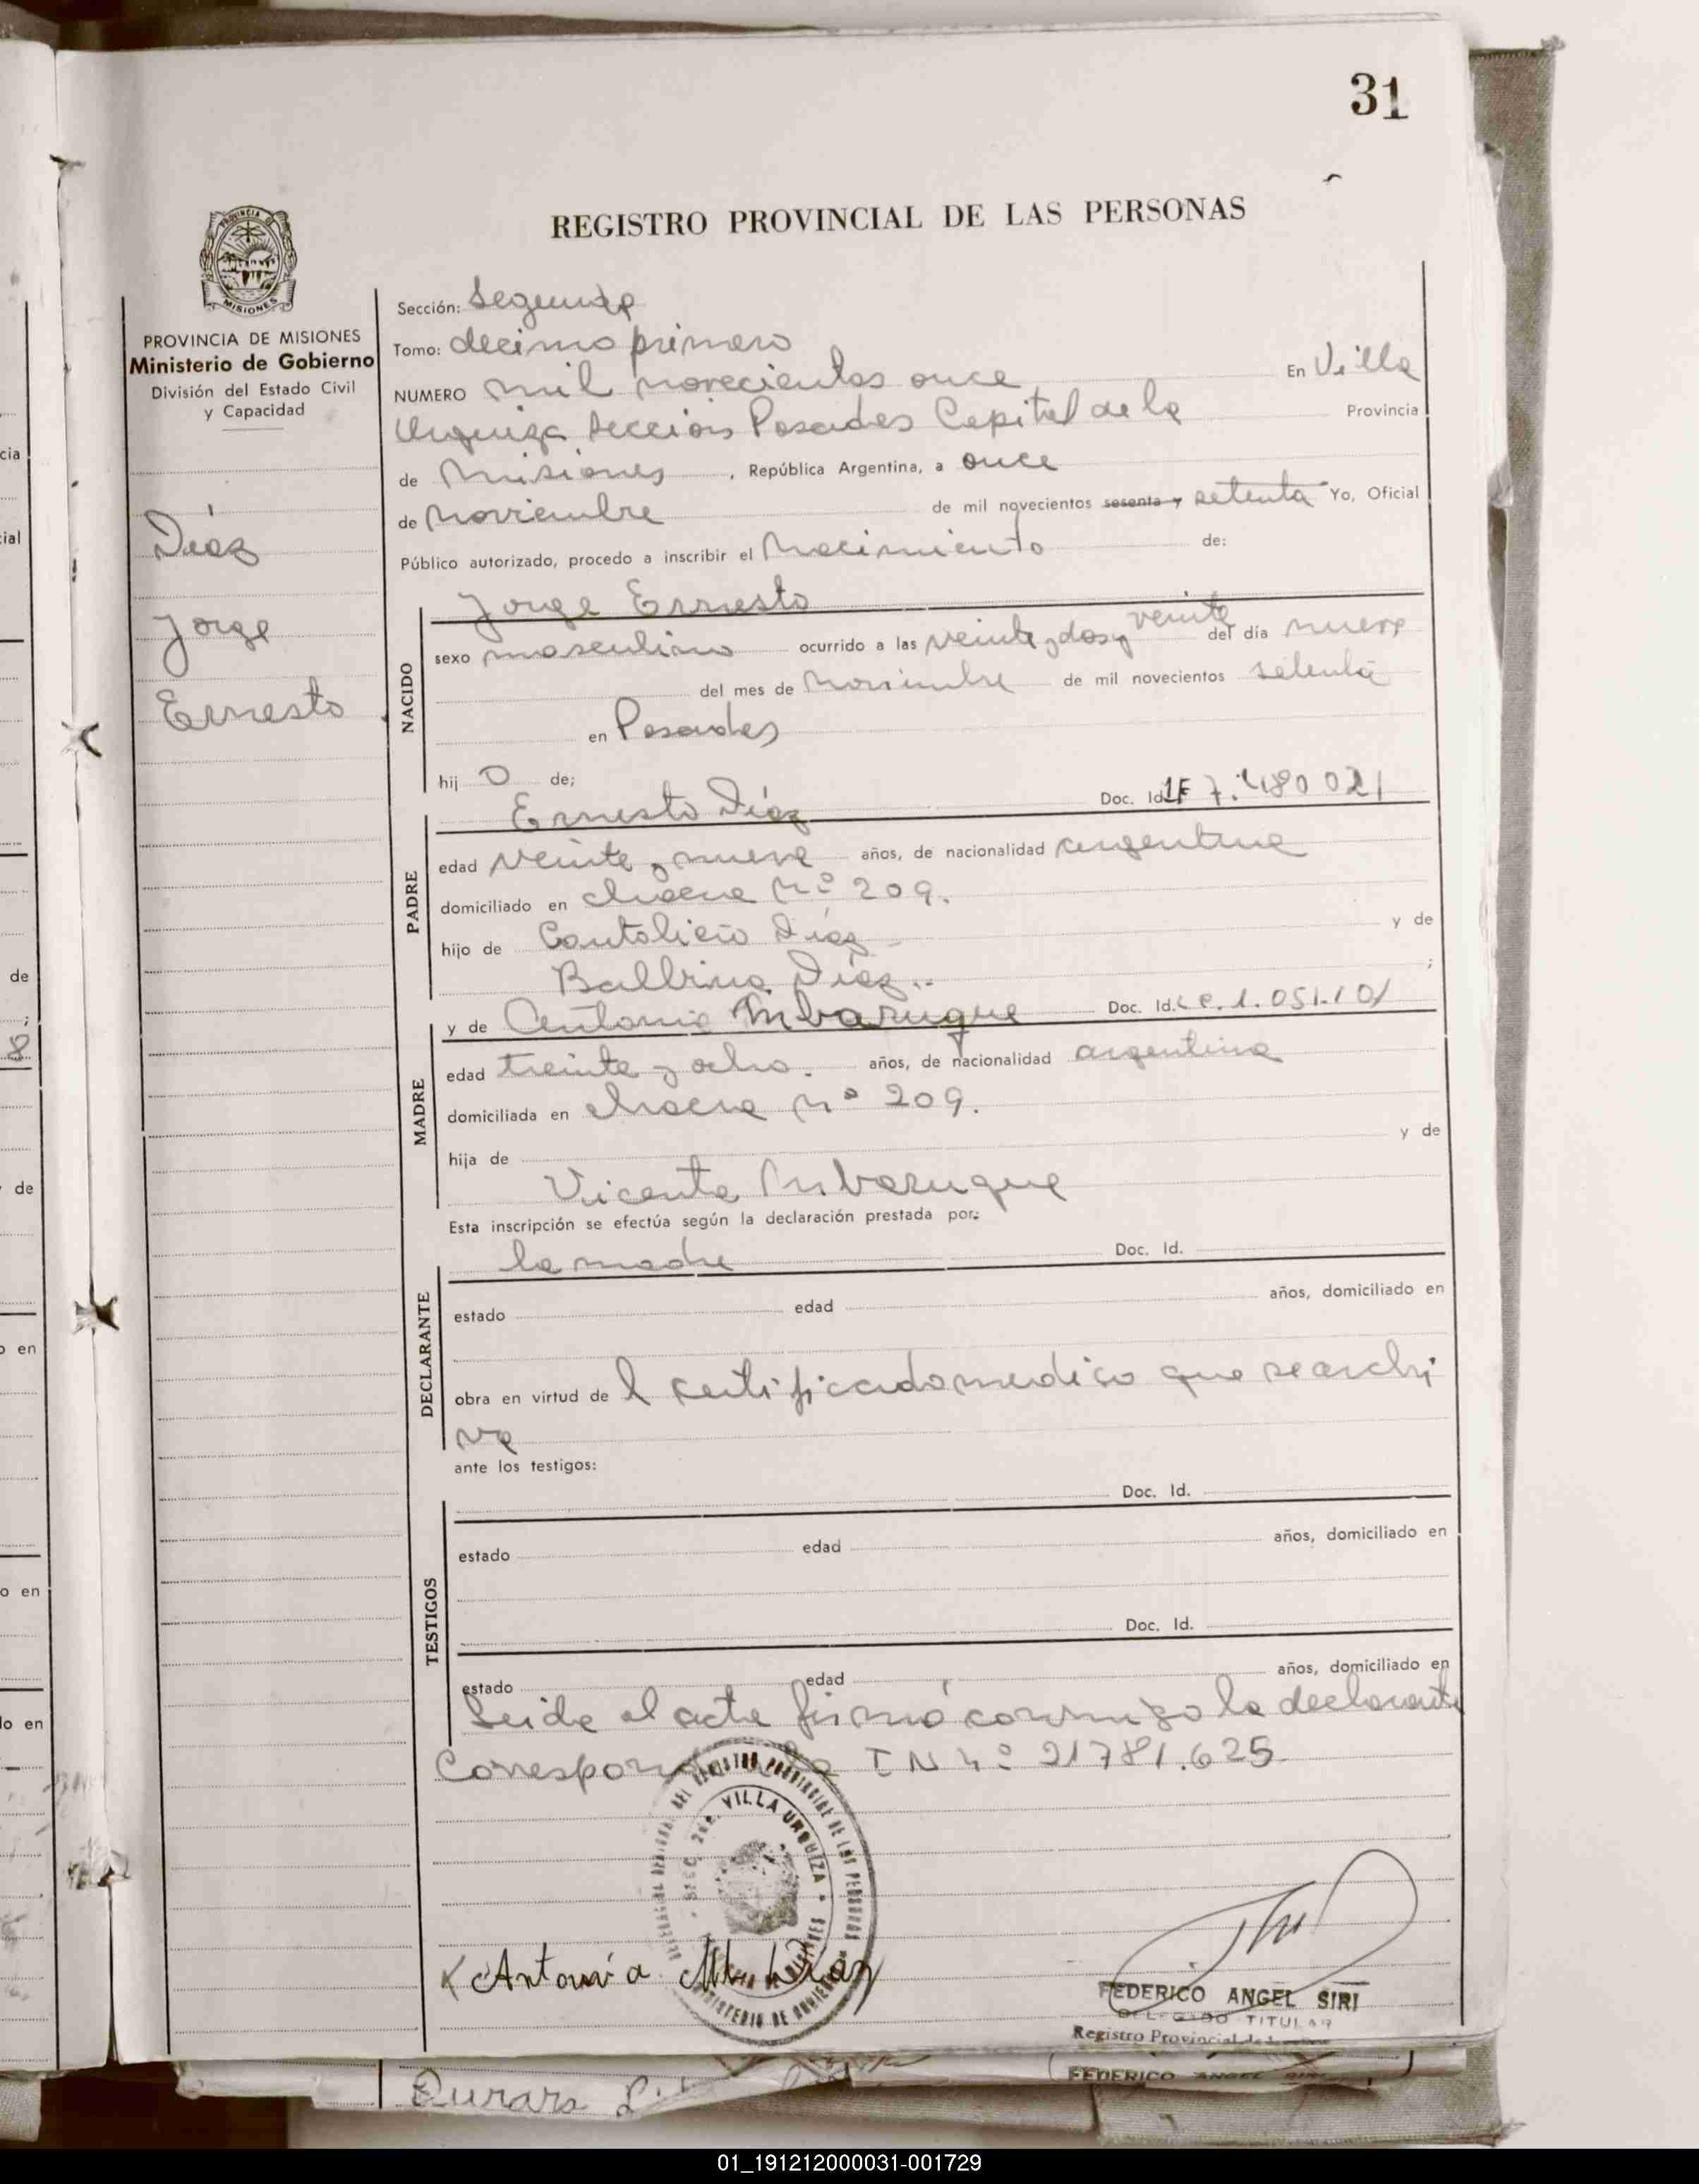 31
REGISTRO PROVINCIAL DE LAS PERSONAS
PROVINCIA DE MISIONES
PROVINCIA DE MISIONES
Ministerio de Gobierno
División del Estado Civil
y Capacidad
Díaz
Jorge
Ernesto
Sección: Segunda
Tomo: decimo primero
NUMERO mil novecientos once En Villa
Urquiza Sección Posadas Capital de la Provincia
de Misiones, República Argentina, a once
de Noviembre de mil novecientos sesenta y setenta Yo, Oficial
Público autorizado, procedo a inscribir el Nacimiento de:
Jorge Ernesto
NACIDO
sexo masculino ocurrido a las veinte y dos y veinte del día nueve
del mes de Noviembre de mil novecientos setenta
en Posadas
hij o de;
PADRE
Ernesto Díaz Doc. Id. 7.480021
edad veinte y nueve años, de nacionalidad argentina
domiciliado en chacra Nº 209.
hijo de Cantalicio Díaz y de
Balbina Díaz ;
MADRE
y de Antonia Mbarugue Doc. Id. L C. 1.051.101
edad treinta y ocho. años, de nacionalidad argentina
domiciliada en chacra nº 209.
hija de y de
Vicenta Mbarugue
Esta inscripción se efectúa según la declaración prestada por:
DECLARANTE
la madre Doc. Id.
estado edad años, domiciliado en
obra en virtud de l certificado medico que se archi
va
ante los testigos:
TESTIGOS
Doc. Id.
estado edad años, domiciliado en
Doc. Id.
estado edad años, domiciliado en
Leida el acta firmó conmigo la declarante
Corresponde la I N nº 21781.625
REGISTRO PROVINCIAL DE LAS PERSONAS
SECC. 2da. VILLA URQUIZA
MINISTERIO DE GOBIERNO
Antonia M. Díaz
FEDERICO ANGEL SIRI
DELEGADO TITULAR
Registro Provincial de
FEDERICO ANGEL SIRI
cia
cial
de
;
8
de
o en
o en
lo en
01_191212000031-001729